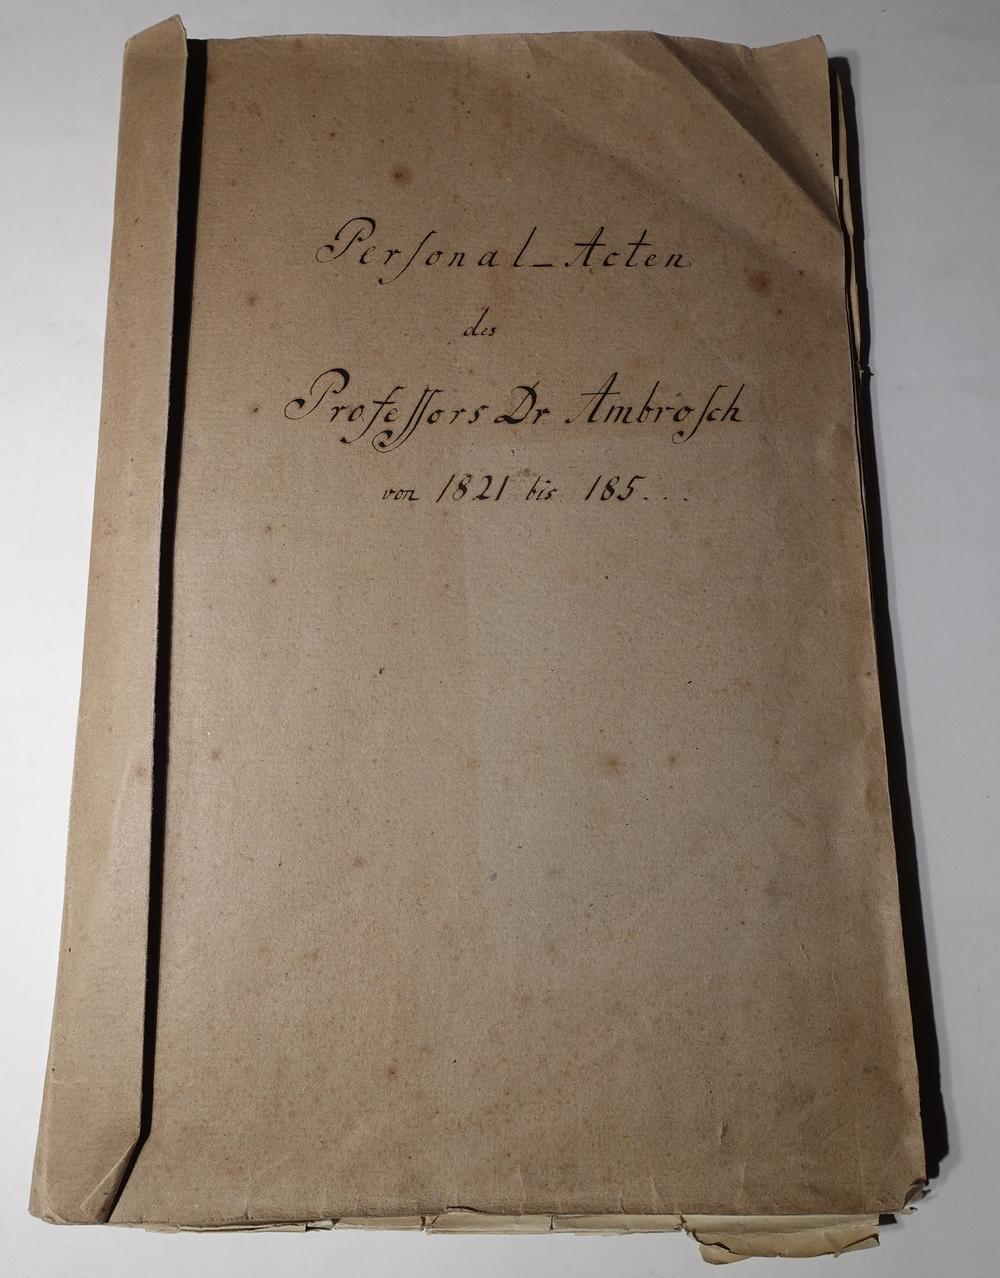 Perſonal-Acten
des
Profeſſors Dr Ambroſch
von 1821 bis 185...